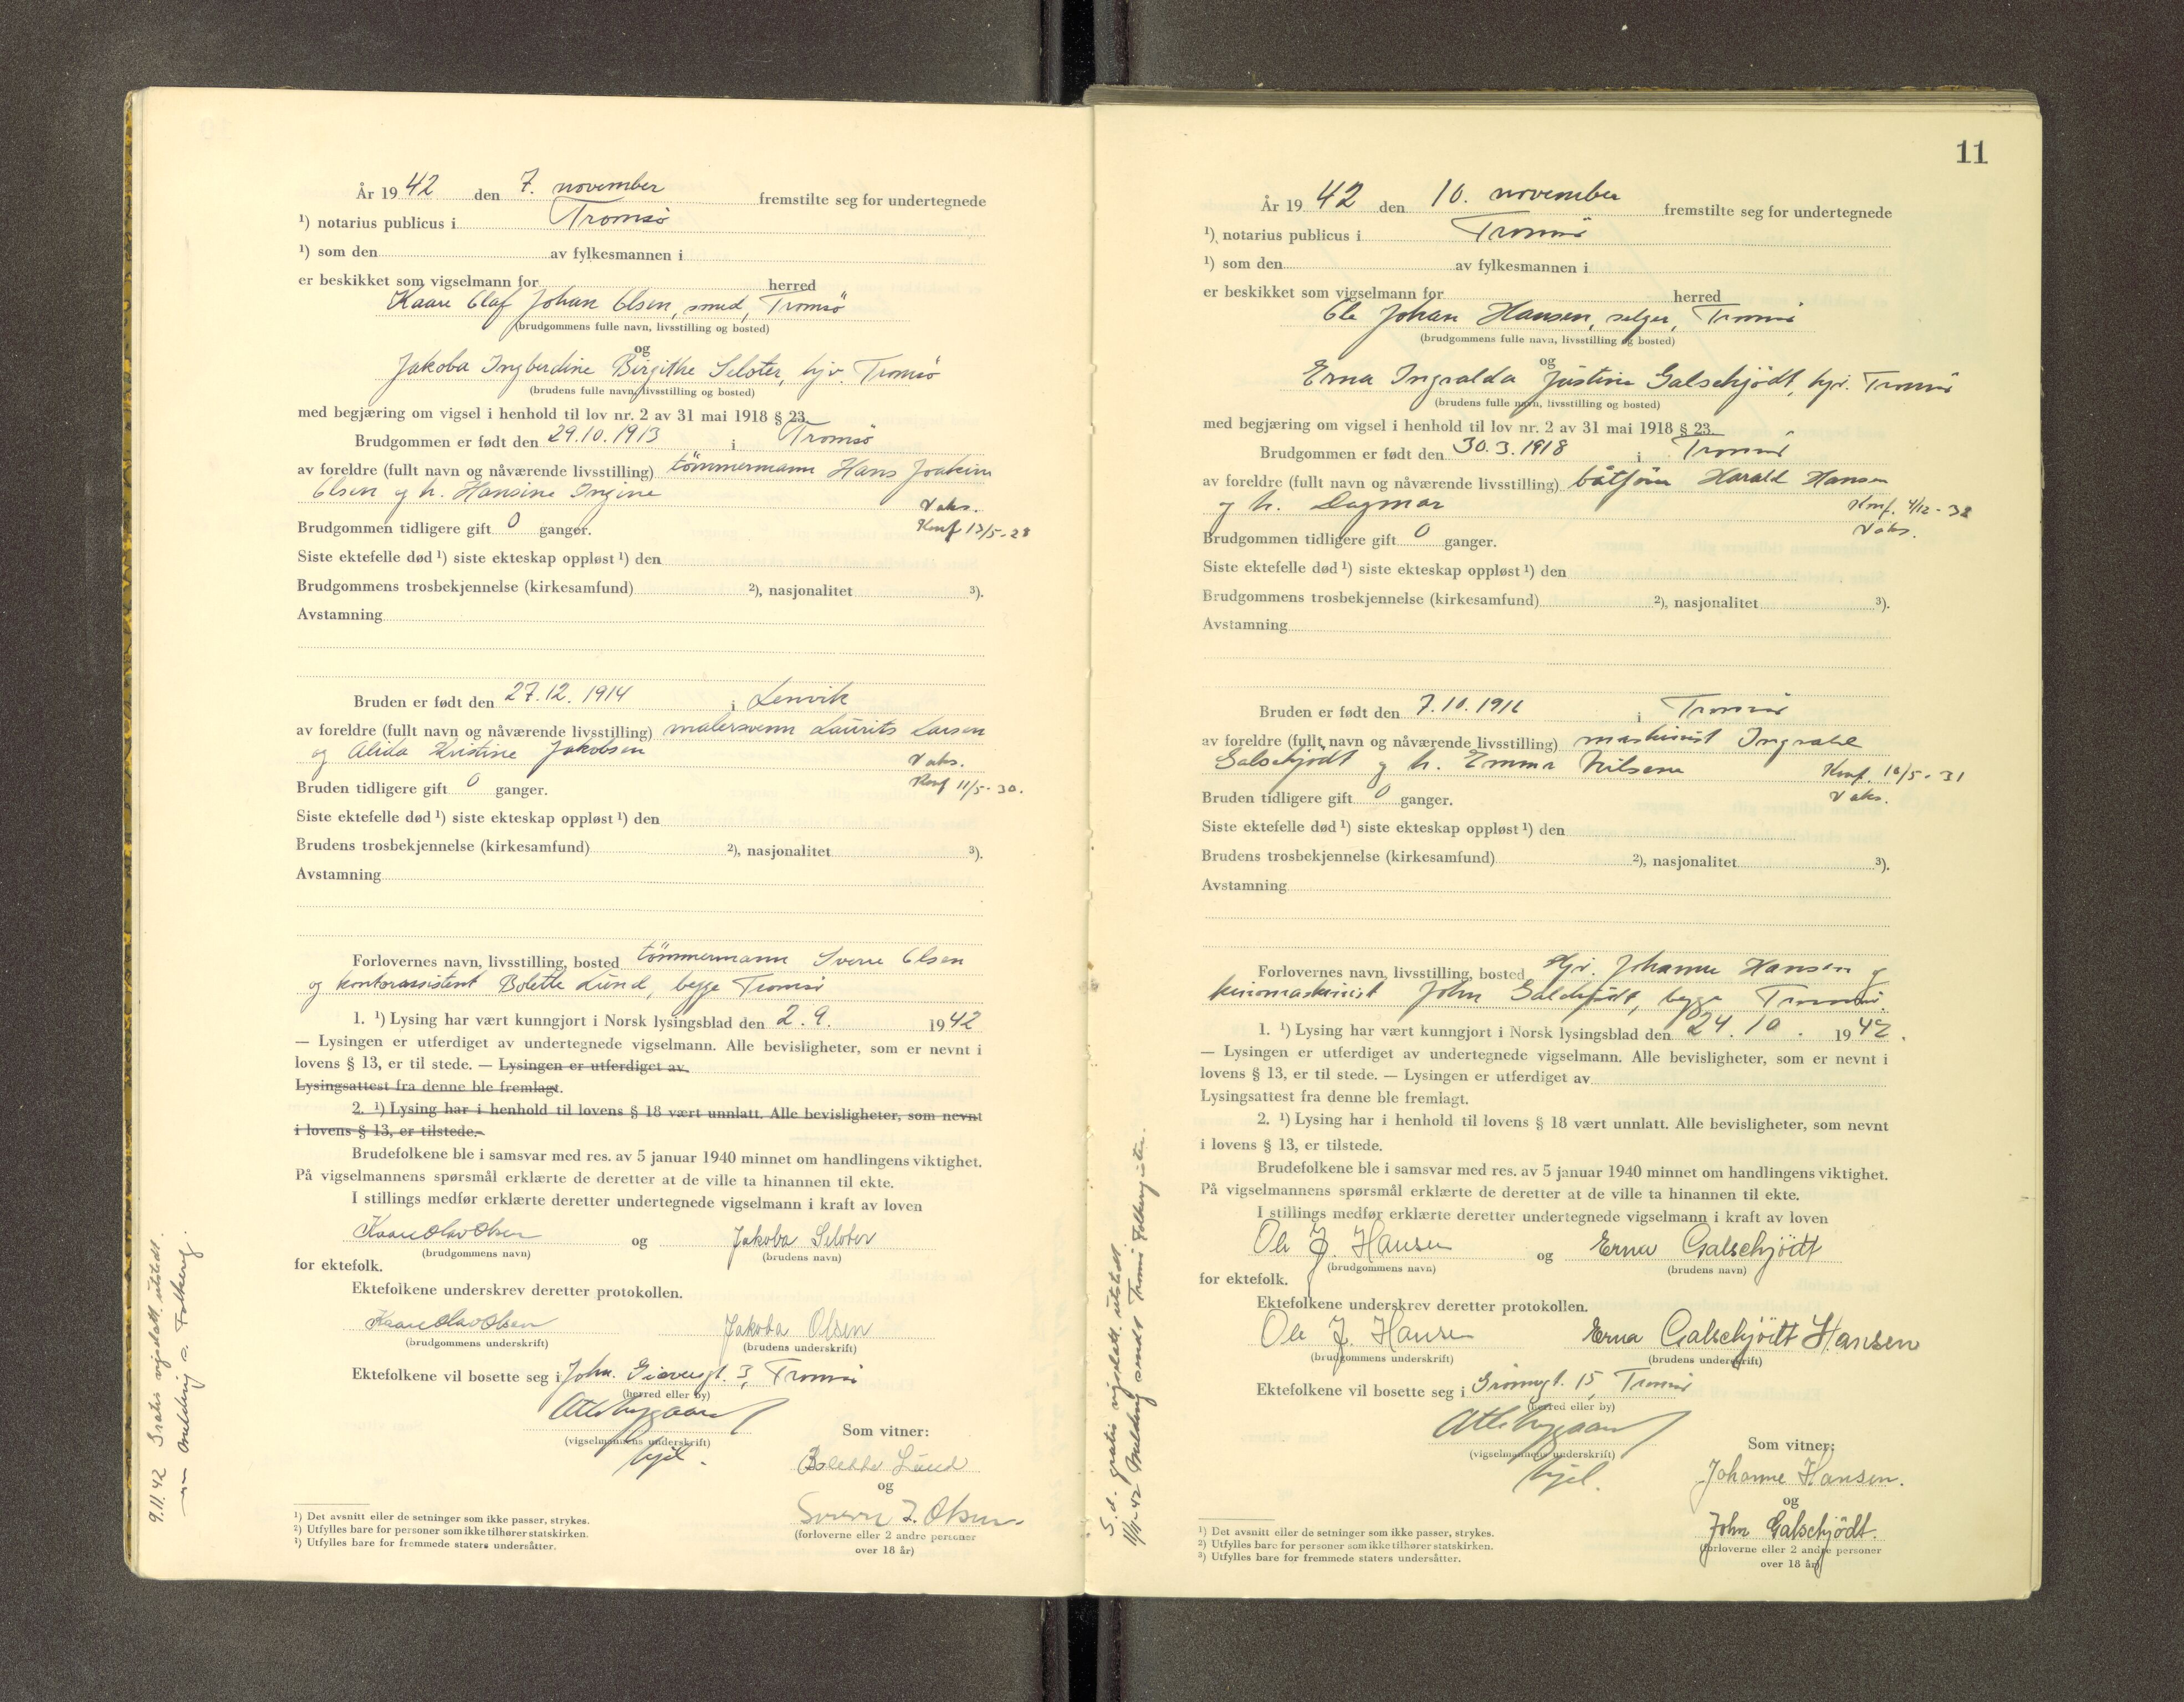 År 1942 den 7. november fremstilte seg for undertegnede
¹) notarius publicus i Tromsø
¹) som den av fylkesmannen i
er beskikket som vigselmann for herred
Kaare Olaf Johan Olsen, smed, Tromsö
(brudgommens fulle navn, livsstilling og bosted)
og
Jakoba Ingberdine Birgithe Seloter, hjv. Tromsö
(brudens fulle navn, livsstilling og bosted)
med begjæring om vigsel i henhold til lov nr. 2 av 31 mai 1918 § 23.
Brudgommen er født den 29.10.1913 i Tromsö
av foreldre (fullt navn og nåværende livsstilling) tömmermann Hans Joakim
Olsen og h. Hansine Ingine
Vaks.
Brudgommen tidligere gift 0 ganger. Konf 13/5-28
Siste ektefelle død ¹) siste ekteskap oppløst ¹) den
Brudgommens trosbekjennelse (kirkesamfund) ²), nasjonalitet ³).
Avstamning
Bruden er født den 27.12.1914 i Lenvik
av foreldre (fullt navn og nåværende livsstilling) malersvenn Laurits Larsen
og Alida Kristine Jakobsen
Vaks.
Bruden tidligere gift 0 ganger. Konf 11/5-30.
Siste ektefelle død ¹) siste ekteskap oppløst ¹) den
Brudens trosbekjennelse (kirkesamfund) ²), nasjonalitet ³).
Avstamning
Forlovernes navn, livsstilling, bosted tömmermann Sverre Olsen
og kontorassistent Bolette Lund, begge Tromsö
1. ¹) Lysing har vært kunngjort i Norsk lysingsblad den 2.9. 1942
— Lysingen er utferdiget av undertegnede vigselmann. Alle bevisligheter, som er nevnt i
lovens § 13, er til stede. — Lysingen er utferdiget av
Lysingsattest fra denne ble fremlagt.
2. ¹) Lysing har i henhold til lovens § 18 vært unnlatt. Alle bevisligheter, som nevnt
i lovens § 13, er tilstede.
Brudefolkene ble i samsvar med res. av 5 januar 1940 minnet om handlingens viktighet.
På vigselmannens spørsmål erklærte de deretter at de ville ta hinannen til ekte.
I stillings medfør erklærte deretter undertegnede vigselmann i kraft av loven
Kaare Olav Olsen og Jakoba Seloter
(brudgommens navn) (brudens navn)
for ektefolk.
Ektefolkene underskrev deretter protokollen.
Kaare Olav Olsen Jakoba Olsen
(brudgommens underskrift) (brudens underskrift)
Ektefolkene vil bosette seg i John. Giæversgt. 3, Tromsö
(herred eller by)
(vigselmannens underskrift)
Som vitner:
Bolette Lund
og
Sverre J. Olsen
(forloverne eller 2 andre personer
over 18 år)
¹) Det avsnitt eller de setninger som ikke passer, strykes.
²) Utfylles bare for personer som ikke tilhører statskirken.
³) Utfylles bare for fremmede staters undersåtter.
9.11.42 Gratis vigselatt. utstedt.
— melding s. Folkereg.
11
År 1942 den 10. november fremstilte seg for undertegnede
¹) notarius publicus i Tromsö
¹) som den av fylkesmannen i
er beskikket som vigselmann for herred
Ole Johan Hansen, selger, Tromsö
(brudgommens fulle navn, livsstilling og bosted)
og
Erna Ingvalda Justine Galschjödt, hjv. Tromsö
(brudens fulle navn, livsstilling og bosted)
med begjæring om vigsel i henhold til lov nr. 2 av 31 mai 1918 § 23.
Brudgommen er født den 30.3.1918 i Tromsö
av foreldre (fullt navn og nåværende livsstilling) båtfører Harald Hansen
og h. Dagmar Konf. 4/12-32
Vaks.
Brudgommen tidligere gift 0 ganger.
Siste ektefelle død ¹) siste ekteskap oppløst ¹) den
Brudgommens trosbekjennelse (kirkesamfund) ²), nasjonalitet ³).
Avstamning
Bruden er født den 7.10.1916 i Tromsö
av foreldre (fullt navn og nåværende livsstilling) maskinist Ingvald
Galschjödt og h. Emma Nilsene Konf. 18/5-31
Bruden tidligere gift 0 ganger. Vaks.
Siste ektefelle død ¹) siste ekteskap oppløst ¹) den
Brudens trosbekjennelse (kirkesamfund) ²), nasjonalitet ³).
Avstamning
Forlovernes navn, livsstilling, bosted Hjv. Johanne Hansen og
kinomaskinist John Galschjödt, begge Tromsö.
1. ¹) Lysing har vært kunngjort i Norsk lysingsblad den 24.10. 1942.
— Lysingen er utferdiget av undertegnede vigselmann. Alle bevisligheter, som er nevnt i
lovens § 13, er til stede. — Lysingen er utferdiget av
Lysingsattest fra denne ble fremlagt.
2. ¹) Lysing har i henhold til lovens § 18 vært unnlatt. Alle bevisligheter, som nevnt
i lovens § 13, er tilstede.
Brudefolkene ble i samsvar med res. av 5 januar 1940 minnet om handlingens viktighet.
På vigselmannens spørsmål erklærte de deretter at de ville ta hinannen til ekte.
I stillings medfør erklærte deretter undertegnede vigselmann i kraft av loven
Ole J. Hansen og Erna Galschjödt
(brudgommens navn) (brudens navn)
for ektefolk.
Ektefolkene underskrev deretter protokollen.
Ole J. Hansen Erna Galschjödt Hansen
(brudgommens underskrift) (brudens underskrift)
Ektefolkene vil bosette seg i Grönnegt. 15, Tromsö
(herred eller by)
(vigselmannens underskrift)
Som vitner:
Johanne Hansen.
og
John Galschjödt.
(forloverne eller 2 andre personer
over 18 år)
¹) Det avsnitt eller de setninger som ikke passer, strykes.
²) Utfylles bare for personer som ikke tilhører statskirken.
³) Utfylles bare for fremmede staters undersåtter.
S.d. gratis vigselatt. utstedt.
11/11-42 Melding sendt Tromsö Folkeregister.